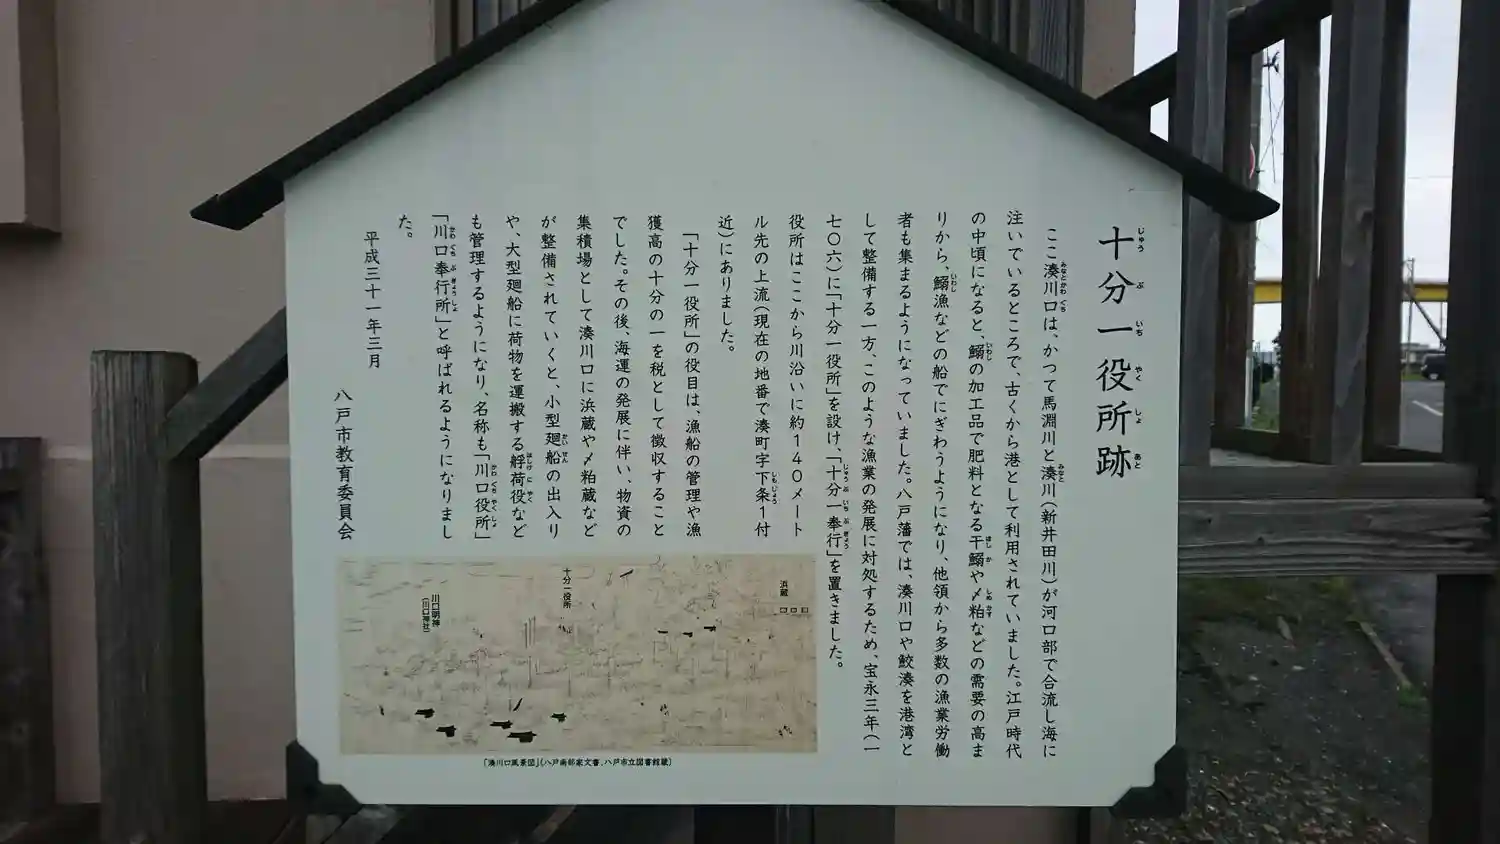 十分一役所跡
ここ湊川口は、かつて馬淵川と湊川（新井田川）が河口部で合流し海に
注いでいるところで、古くから港として利用されていました。江戸時代
の中頃になると、鰯の加工品で肥料となる干鰯や〆粕などの需要の高ま
りから、鰯漁などの船でにぎわうようになり、他領から多数の漁業労働
者も集まるようになっていました。八戸藩では、湊川口や鮫湊を港湾と
して整備する一方、このような漁業の発展に対処するため、宝永三年（一
七〇六）に「十分一役所」を設け、「十分一奉行」を置きました。
役所はここから川沿いに約140メート
ル先の上流（現在の地番で湊町字下条1付
近）にありました。
「十分一役所」の役目は、漁船の管理や漁
獲高の十分の一を税として徴収すること
でした。その後、海運の発展に伴い、物資の
集積場として湊川口に浜蔵や〆粕蔵など
が整備されていくと、小型廻船の出入り
や、大型廻船に荷物を運搬する艀荷役など
も管理するようになり、名称も「川口役所」
「川口奉行所」と呼ばれるようになりまし
た。
平成三十一年三月
八戸市教育委員会
浜蔵
十分一役所
川口明神
（川口神社）
「湊川口風景図」（八戸南部家文書、八戸市立図書館蔵）